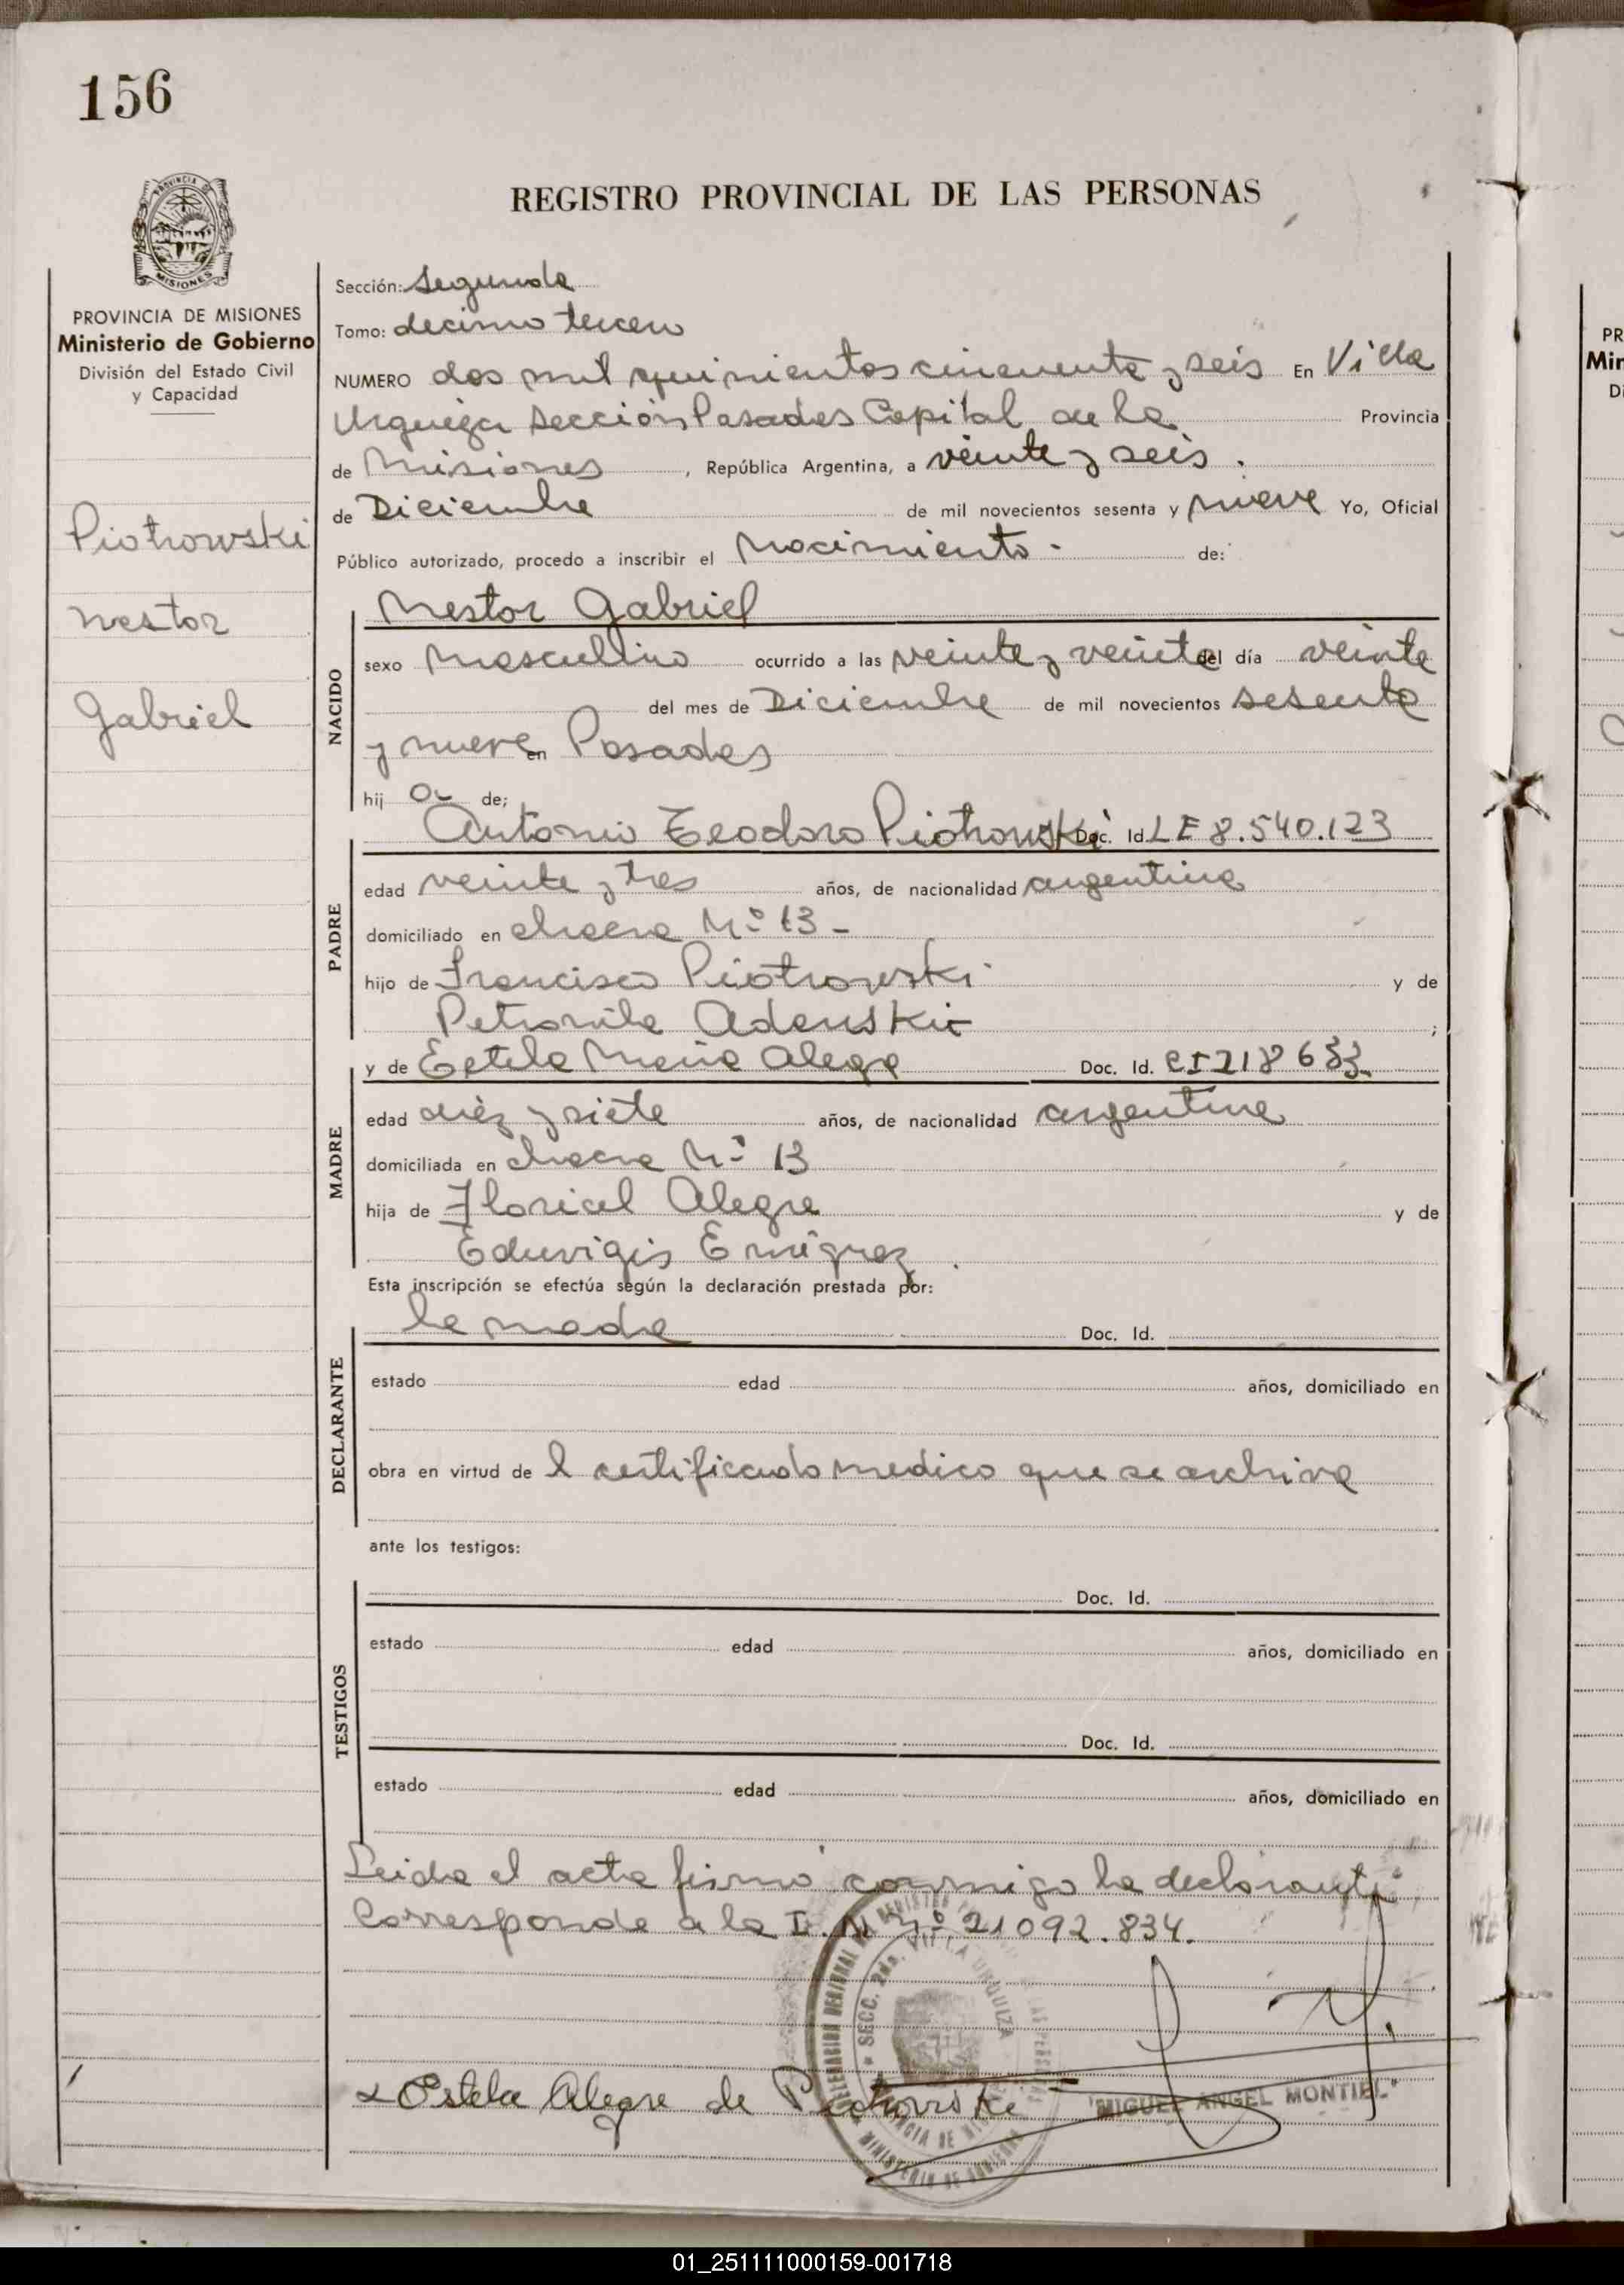 156
PROVINCIA DE
MISIONES
REGISTRO PROVINCIAL DE LAS PERSONAS
PROVINCIA DE MISIONES
Ministerio de Gobierno
División del Estado Civil
y Capacidad
Piotrowski
Nestor
Gabriel
Sección: Segunda
Tomo: decimo tercero
NUMERO dos mil quinientos cincuenta y seis En Villa
Urquiza Sección Posadas Capital de la Provincia
de Misiones, República Argentina, a veinte y seis.
de Diciembre de mil novecientos sesenta y nueve Yo, Oficial
Público autorizado, procedo a inscribir el Nacimiento - de:
Nestor Gabriel
NACIDO
sexo Masculino ocurrido a las veinte y veinte del día veinte
del mes de Diciembre de mil novecientos sesenta
y nueve en Posadas
hij o de;
Antonio Teodoro Piotrowski Doc. Id. LE 8.540.123
PADRE
edad veinte y tres años, de nacionalidad argentina
domiciliado en chacra Nº 13 -
hijo de Francisco Piotrowski y de
Petronila Adenski ;
y de Estela Maria Alegre Doc. Id. CI 218633
MADRE
edad diez y siete años, de nacionalidad argentina
domiciliada en chacra Nº 13
hija de Floricel Alegre y de
Eduvigis Enriquez .
Esta inscripción se efectúa según la declaración prestada por:
la madre Doc. Id.
DECLARANTE
estado edad años, domiciliado en
obra en virtud de l certificado medico que se archiva
ante los testigos:
Doc. Id.
TESTIGOS
estado edad años, domiciliado en
Doc. Id.
estado edad años, domiciliado en
Leida el acta firmó conmigo la declarante
Corresponde a la I. M Nº 21092.834.
SECC. 2da. VILLA URQUIZA
MINISTERIO DE GOBIERNO
Estela Alegre de Piotrowski
"MIGUEL ANGEL MONTIEL"
PR
Min
Di
01_251111000159-001718